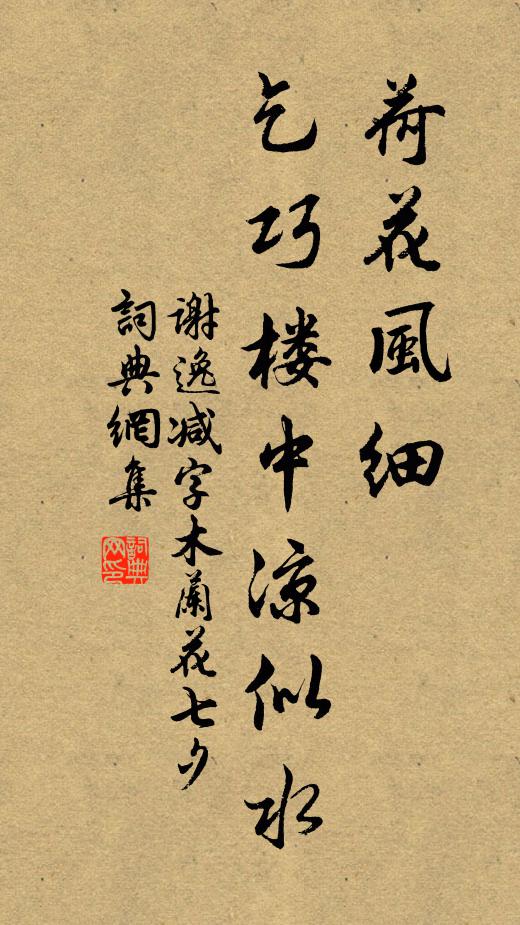 荷花風細
乞巧楼中涼似水
谢逸减字木蘭花七夕
詞典網集
詞典
网印